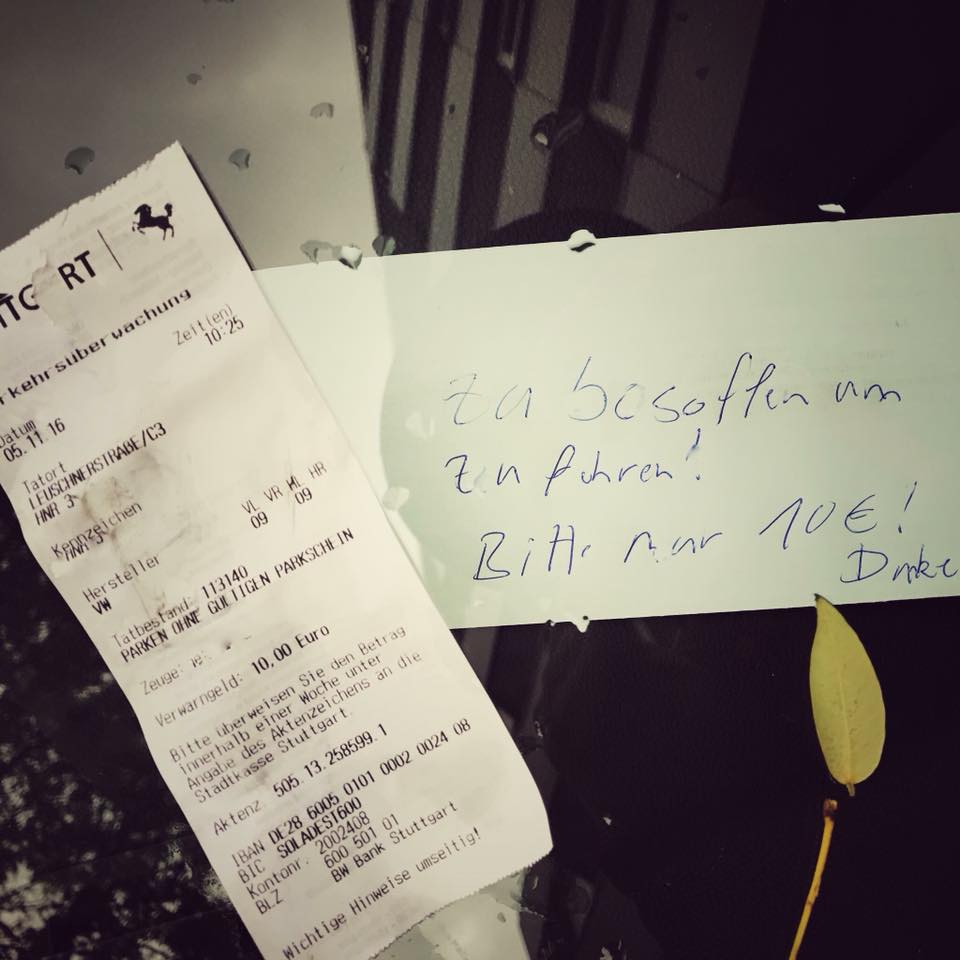 RT
Zeit(en)
10:25
Datum
05.11.16
Tatort
LEUSCHNERSTRAßE/C3
HNR 3
Kennzeichen
VL VR HL HR
09 09
Hersteller
VW
Tatbestand: 113140
PARKEN OHNE GÜLTIGEN PARKSCHEIN
Verwarngeld: 10,00 Euro
Bitte überweisen Sie den Betrag
innerhalb einer Woche unter
Angabe des Aktenzeichens an die
Stadtkasse Stuttgart.
Aktenz. 505.13.258599.1
IBAN DE28 6005 0101 0002 0024 08
BIC SOLADEST600
Kontonr: 2002408
BLZ 600 501 01
BW Bank Stuttgart
Wichtige Hinweise umseitig!
Zu besoffen um
zu fahren!
Bitte nur 10€!
Danke